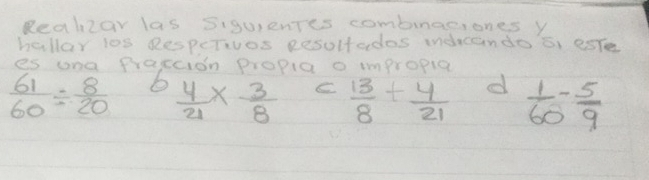 Realizar las siguientes combinaciones y
hallar los RespcTivos Resultados indicando si este
es una fracción propia o impropia
61/60 ÷ 8/20 b 4/21 x 3/8 c 13/8 + 4/21 d 1/60 - 5/9